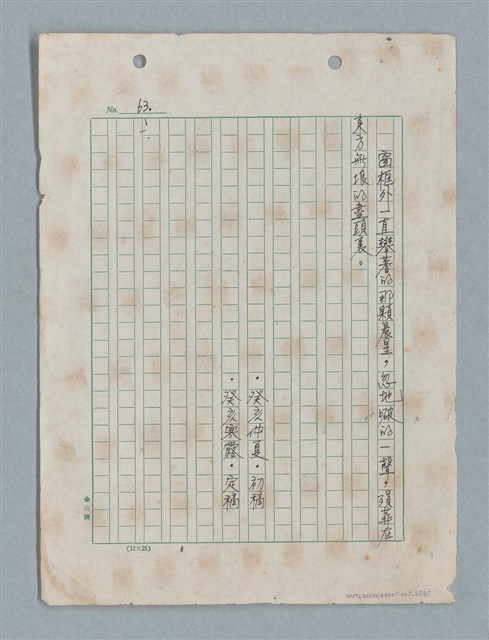 No. 63.
窗框外一直攀著的那顆晨星，忽地啵的一聲，殞葬在
東方無垠的盡頭裏。
・癸亥仲夏・初稿
・癸亥寒露・定稿
金山牌
(12×25)